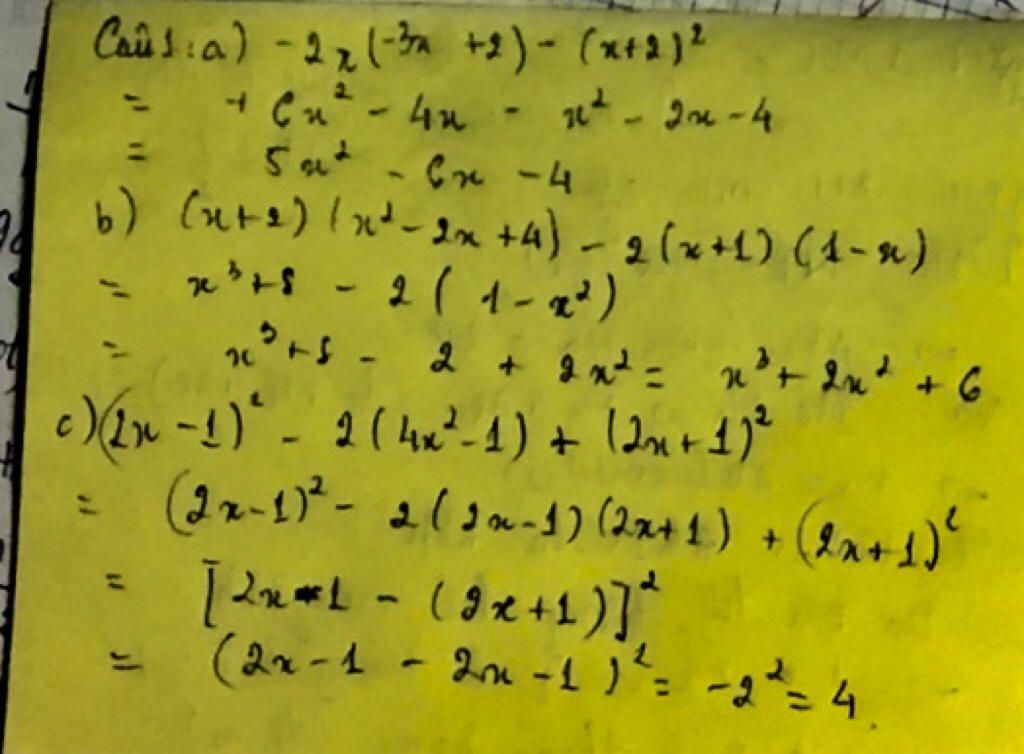 Câu 1: a) -2x(-3x +2) - (x+2)²
= + 6x² - 4x - x² - 2x - 4
= 5x² - 6x - 4
b) (x+2)(x² - 2x +4) - 2(x+1)(1-x)
= x³+8 - 2(1-x²)
= x³+8 - 2 + 2x² = x³ + 2x² + 6
c) (2x-1)² - 2(4x²-1) + (2x+1)²
= (2x-1)² - 2(2x-1)(2x+1) + (2x+1)²
= [2x-1 - (2x+1)]²
= (2x-1 - 2x-1)² = -2² = 4.